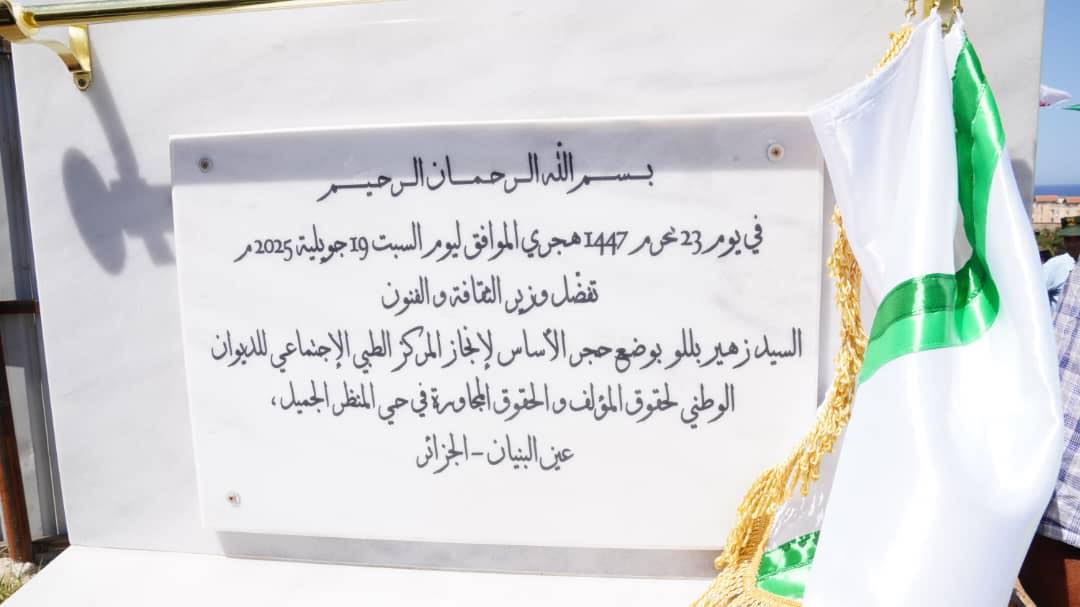 بسم الله الرحمان الرحيم
في يوم 23 محرم 1447 هجري الموافق ليوم السبت 19 جويلية 2025 م
تفضل وزير الثقافة و الفنون
السيد زهير بللو بوضع حجر الأساس لإنجاز المركز الطبي الإجتماعي للديوان
الوطني لحقوق المؤلف و الحقوق المجاورة في حي المنظر الجميل،
عين البنيان - الجزائر